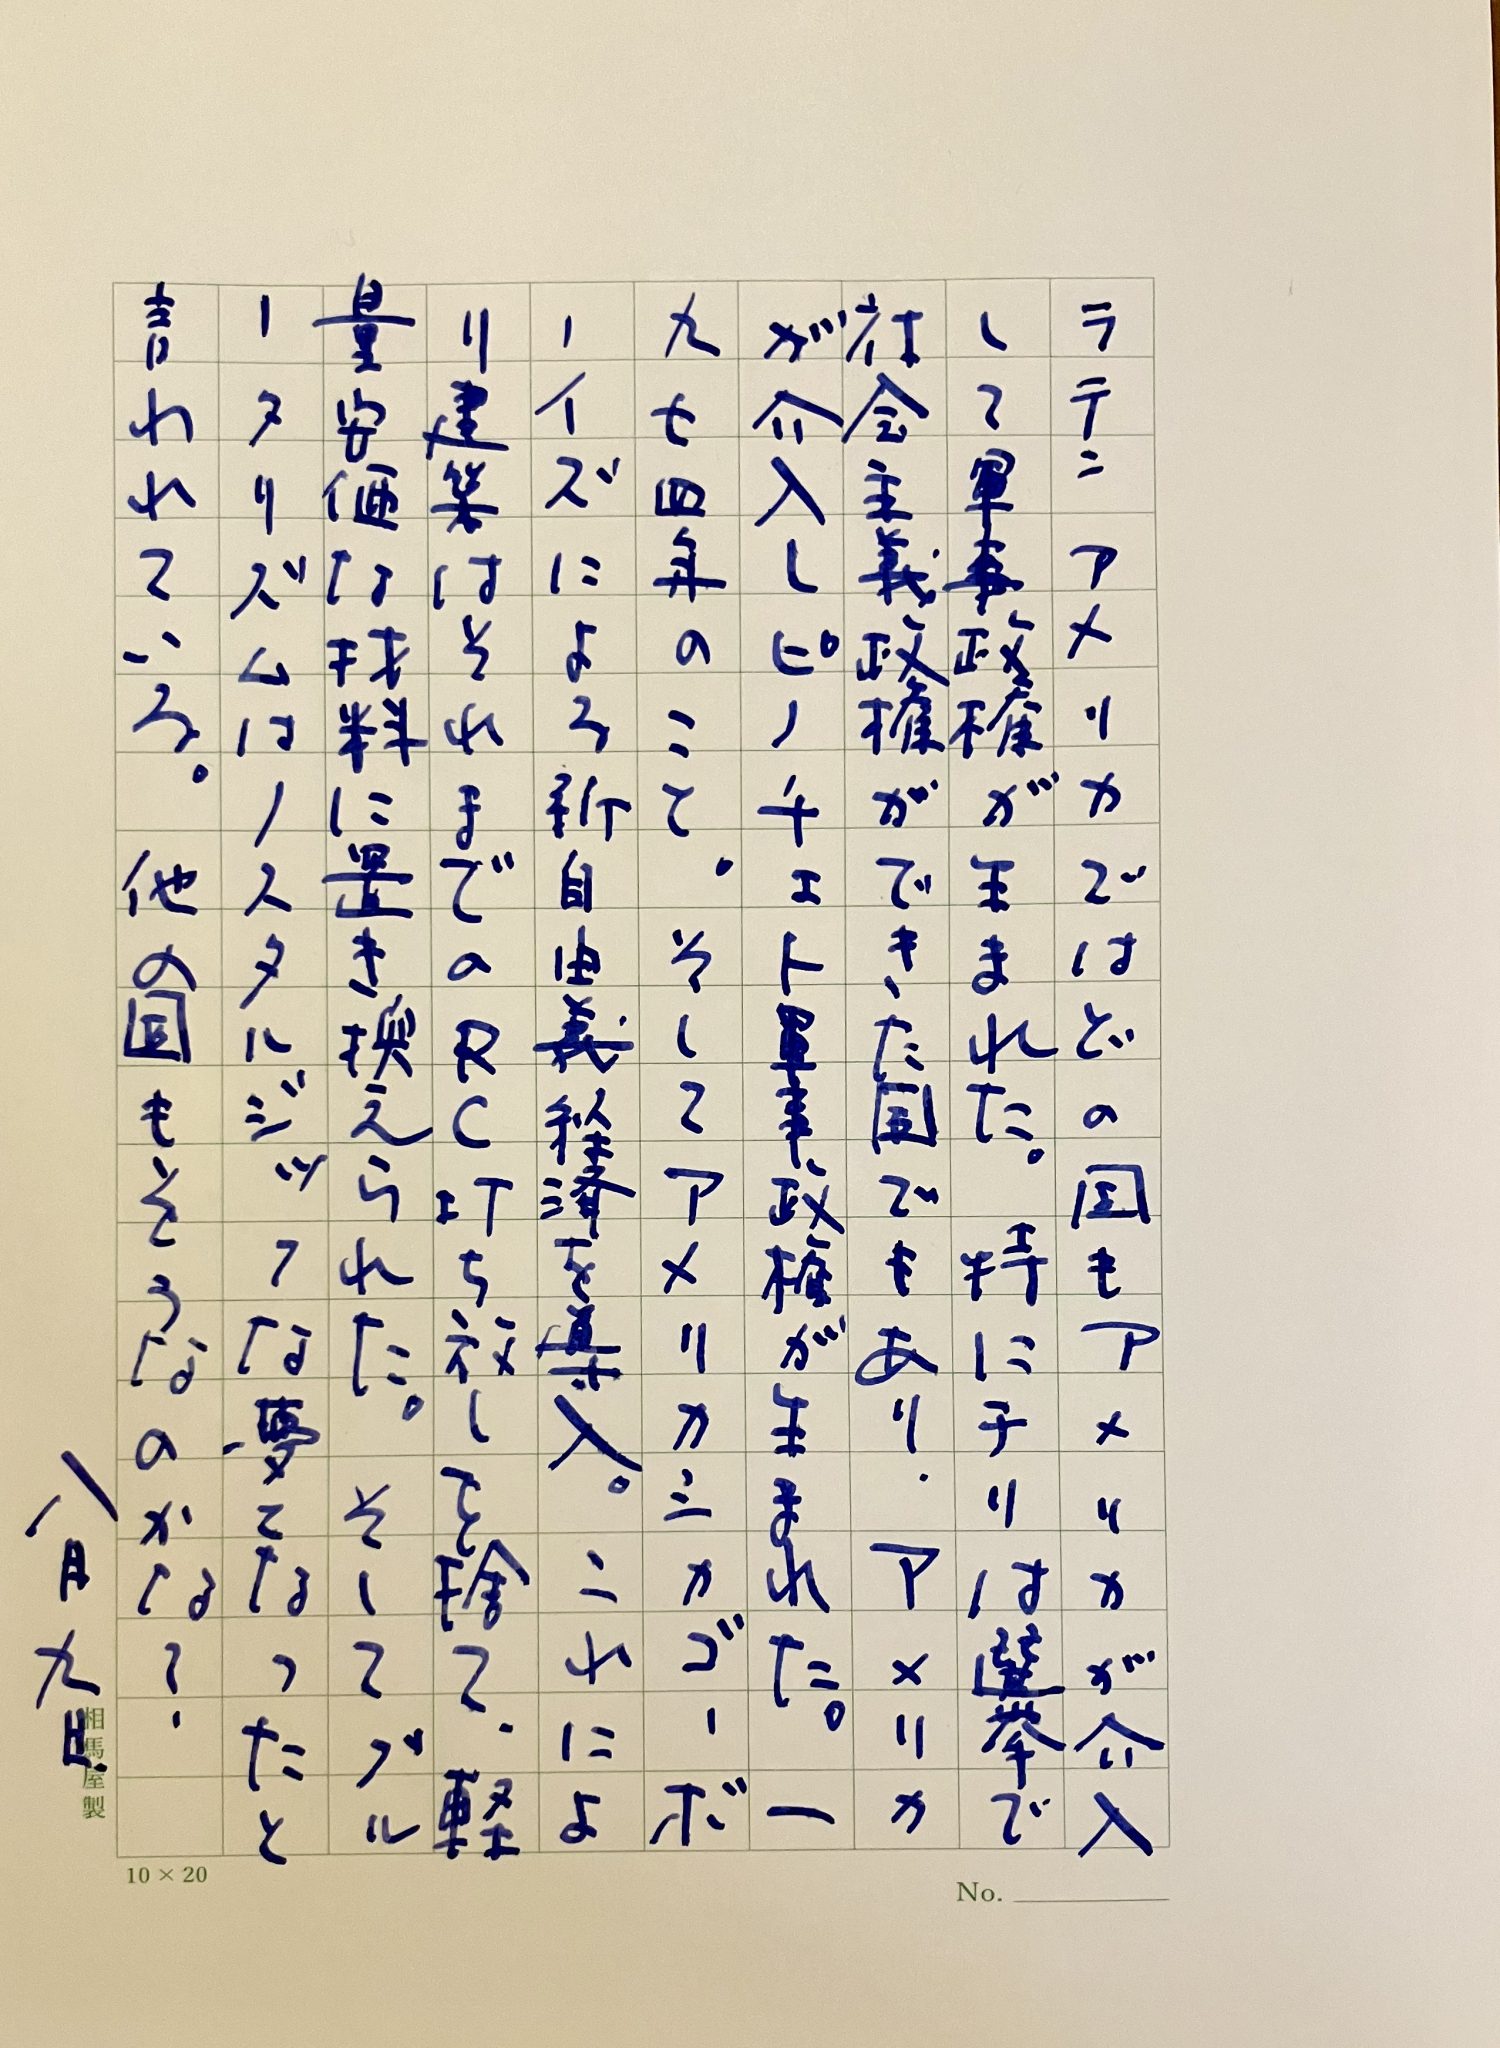 ラテンアメリカではどの国もアメリカが介入
して軍事政権が生まれた。特にチリは選挙で
社会主義政権ができた国でもあり、アメリカ
が介入しピノチェト軍事政権が生まれた。一
九七四年のこと。そしてアメリカシカゴーボ
ーイズによる新自由義経済を導入。これによ
り建築はそれまでのRC打ち放しを捨て、軽
量安価な材料に置き換えられた。そしてブル
ータリズムはノスタルジックな夢となったと
言われている。他の国もそうなのかな?
八月九日
相馬屋製
10 × 20
No.